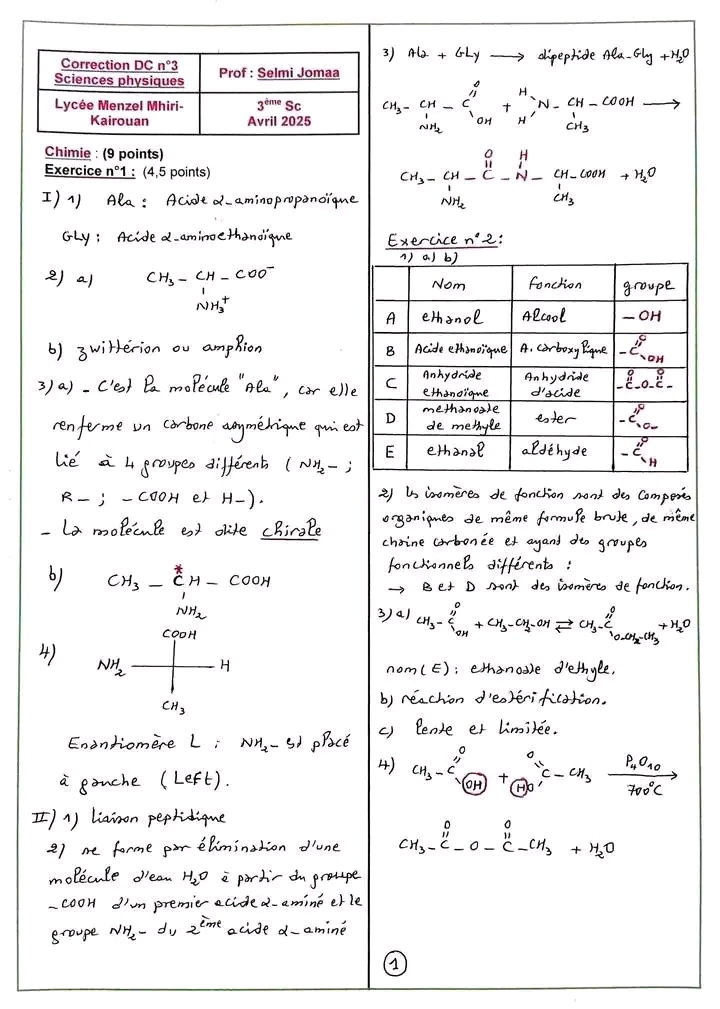 Correction DC n°3
Sciences physiques
Prof : Selmi Jomaa
Lycée Menzel Mhiri-
Kairouan
3ème Sc
Avril 2025
Chimie : (9 points)
Exercice n°1 : (4,5 points)
I) 1) Ala : Acide α-aminopropanoïque
GLy : Acide α-aminoethanoïque
2) a) CH₃ - CH - COO⁻
NH₃⁺
b) zwittérion ou amphion
3) a) - C'est la molécule "Ala", car elle
renferme un carbone asymétrique qui est
lié à 4 groupes différents (NH₂- ;
R- ; -COOH et H-).
- La molécule est dite chirale
b) CH₃ - C*H - COOH
NH₂
4) COOH
NH₂ H
CH₃
Enantiomère L : NH₂- est placé
à gauche (Left).
II) 1) liaison peptidique
2) se forme par élimination d'une
molécule d'eau H₂O à partir du groupe
-COOH d'un premier acide α-aminé et le
groupe NH₂- du 2ème acide α-aminé
3) Ala + GLy → dipeptide Ala-Gly + H₂O
O H
CH₃ - CH - C + N - CH - COOH →
NH₂ OH H CH₃
O H
CH₃ - CH - C - N - CH - COOH + H₂O
NH₂ CH₃
Exercice n°2 :
1) a) b)
Nom fonction groupe
A ethanol Alcool - OH
B Acide ethanoïque A. carboxylique -C O OH
C Anhydride ethanoïque Anhydride d'acide O O -C-O-C-
D methanoate de methyle ester -C O O-
E ethanal aldéhyde -C O H
2) les isomères de fonction sont des composés
organiques de même formule brute, de même
chaine carbonée et ayant des groupes
fonctionnels différents :
→ B et D sont des isomères de fonction.
3) a) CH₃ - C O OH + CH₃-CH₂-OH ⇌ CH₃-C O O-CH₂-CH₃ + H₂O
nom (E) : ethanoate d'ethyle.
b) réaction d'estérification.
c) lente et limitée.
4) CH₃ - C O OH + HO O C - CH₃ P₄O₁₀ 700°C →
O O
CH₃ - C - O - C - CH₃ + H₂O
1